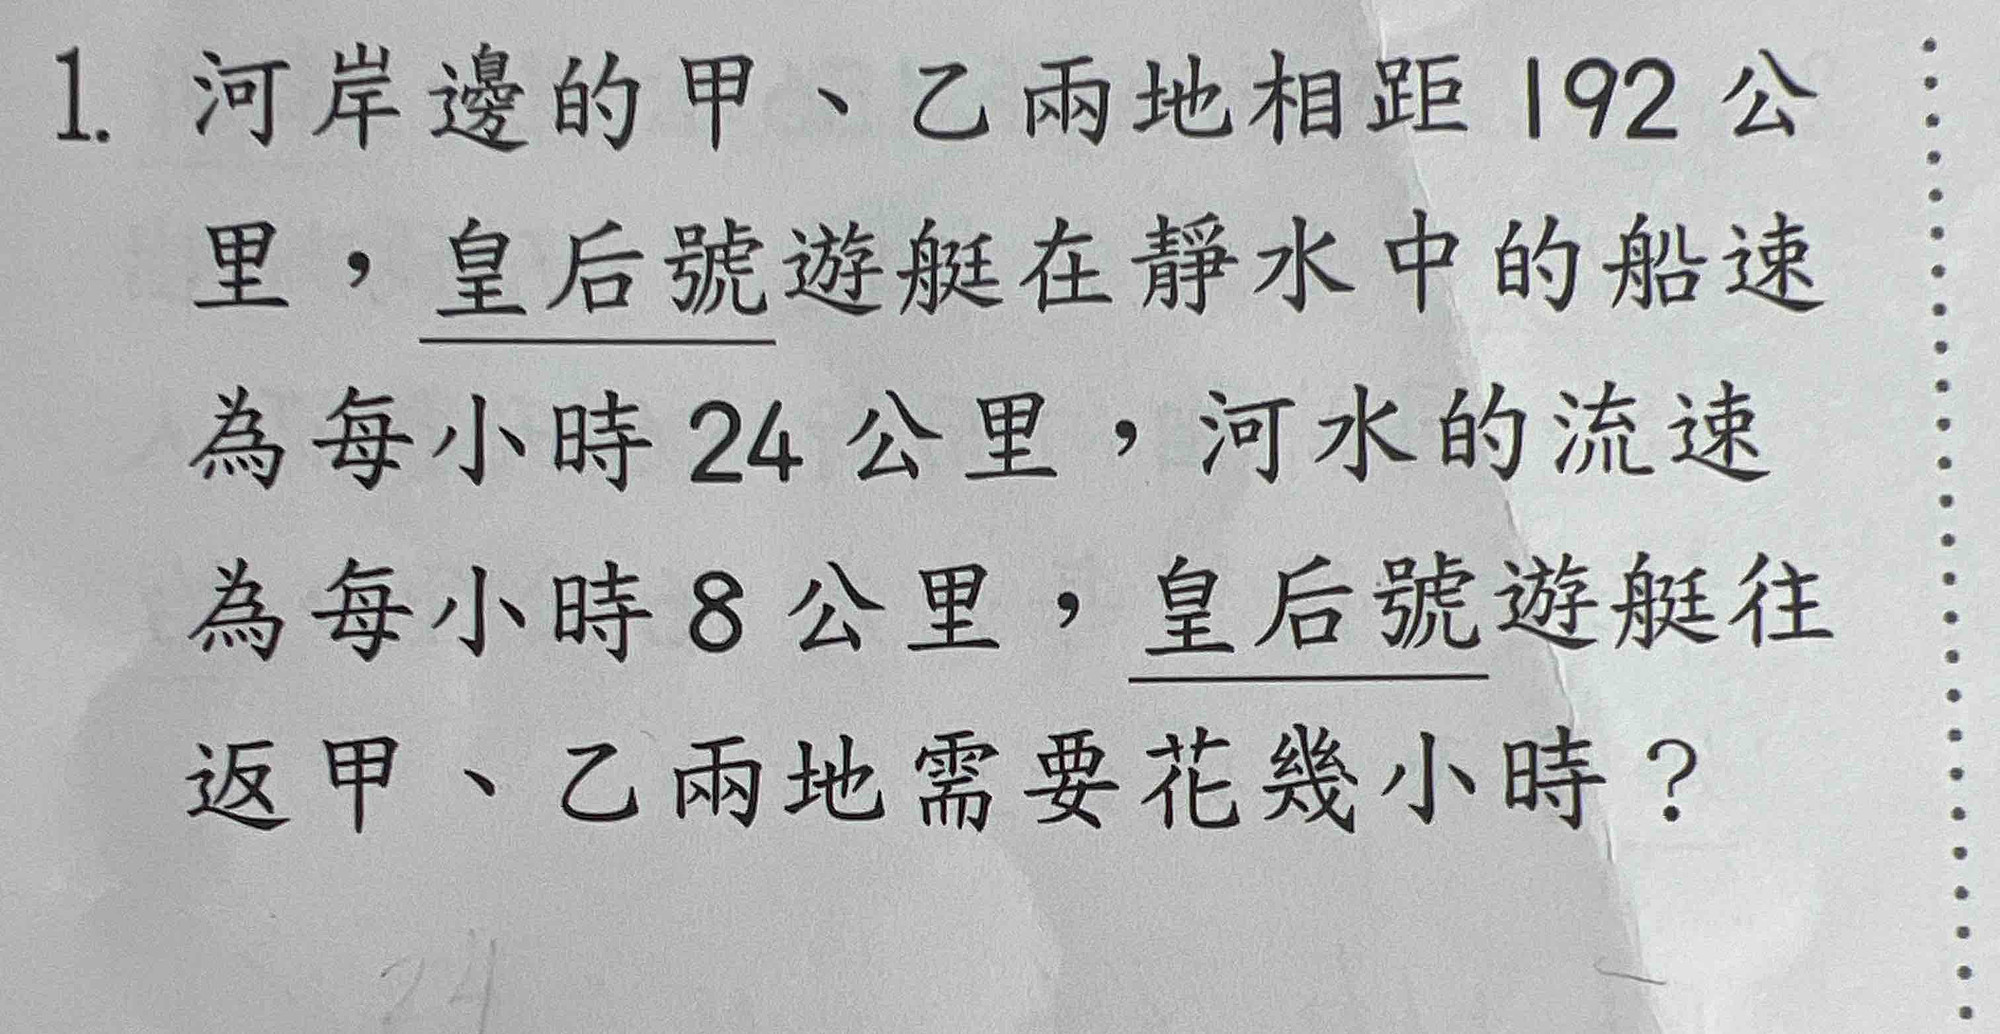 1. 河岸邊的甲、乙兩地相距 192 公
里，皇后號遊艇在靜水中的船速
為每小時 24 公里，河水的流速
為每小時 8 公里，皇后號遊艇往
返甲、乙兩地需要花幾小時？
24